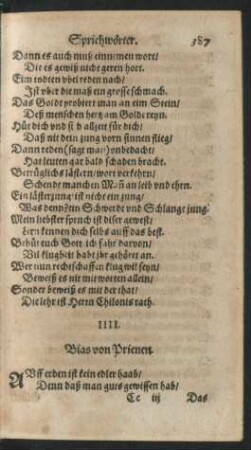 Sprichwörter. 387
Dann es auch muß einnemen wort/
Die es gewiß nicht geren hort.
Eim todten vbel reden nach/
Ist vber die maß ein grosse schmach.
Das Goldt probiert man an eim Stein/
Deß menschen hertz am Golde reyn.
Hüt dich vnd sih allzeit für dich/
Daß nit dein zung vorn sinnen flieg/
Dann reden (sagt man) onbedacht/
Hat leuten gar bald schaden bracht.
Betrüglichs lästern/wort verkehrn/
Schendt manchen Mañ an leib vnd ehrn.
Ein lästerzung ist nicht ein zung/
Was dennst ein Schwerdt vnd Schlange jung
Mein liebster spruch ist diser gewest/
Lern kennen dich selbs auff das best.
Behüt euch Gott ich fahr darvon/
Vil klugheit habt jhr gehöret an.
Wer nun rechtschaffen klug wil seyn/
Beweiß es nit mit worten allein/
Sonder beweiß es mit der that/
Die lehr ist Herrn Chilonis rath.
IIII.
Bias von Prienen
AVff erden ist kein edler haab/
Denn daß man guts gewissen hab/
Cc iij Das